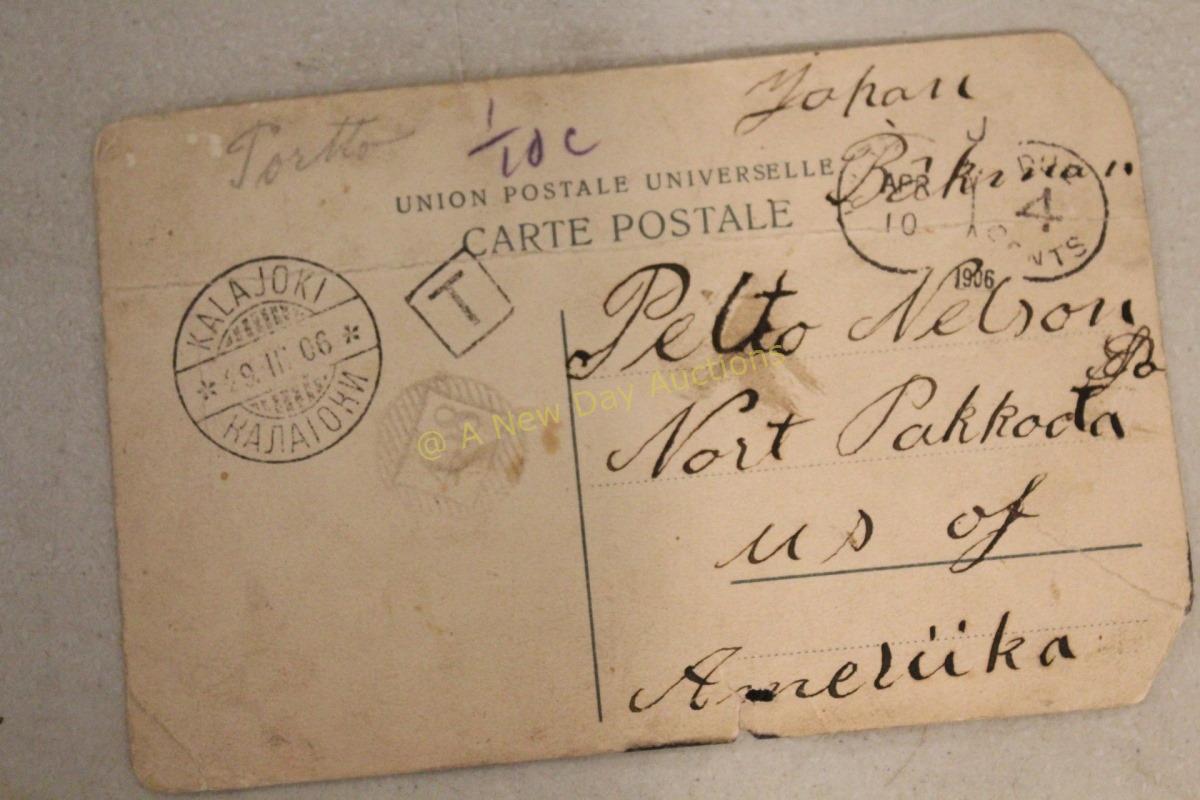 Johan
Portto
1/10 c
UNION POSTALE UNIVERSELLE
CARTE POSTALE
APR
10
1906
DUE
4
CENTS
T
KALAJOKI
29.III 06
КАЛАІОКИ
Pelto Nelson
Nort Pakkoda
us of
Ameriika
@ A New Day Auctions